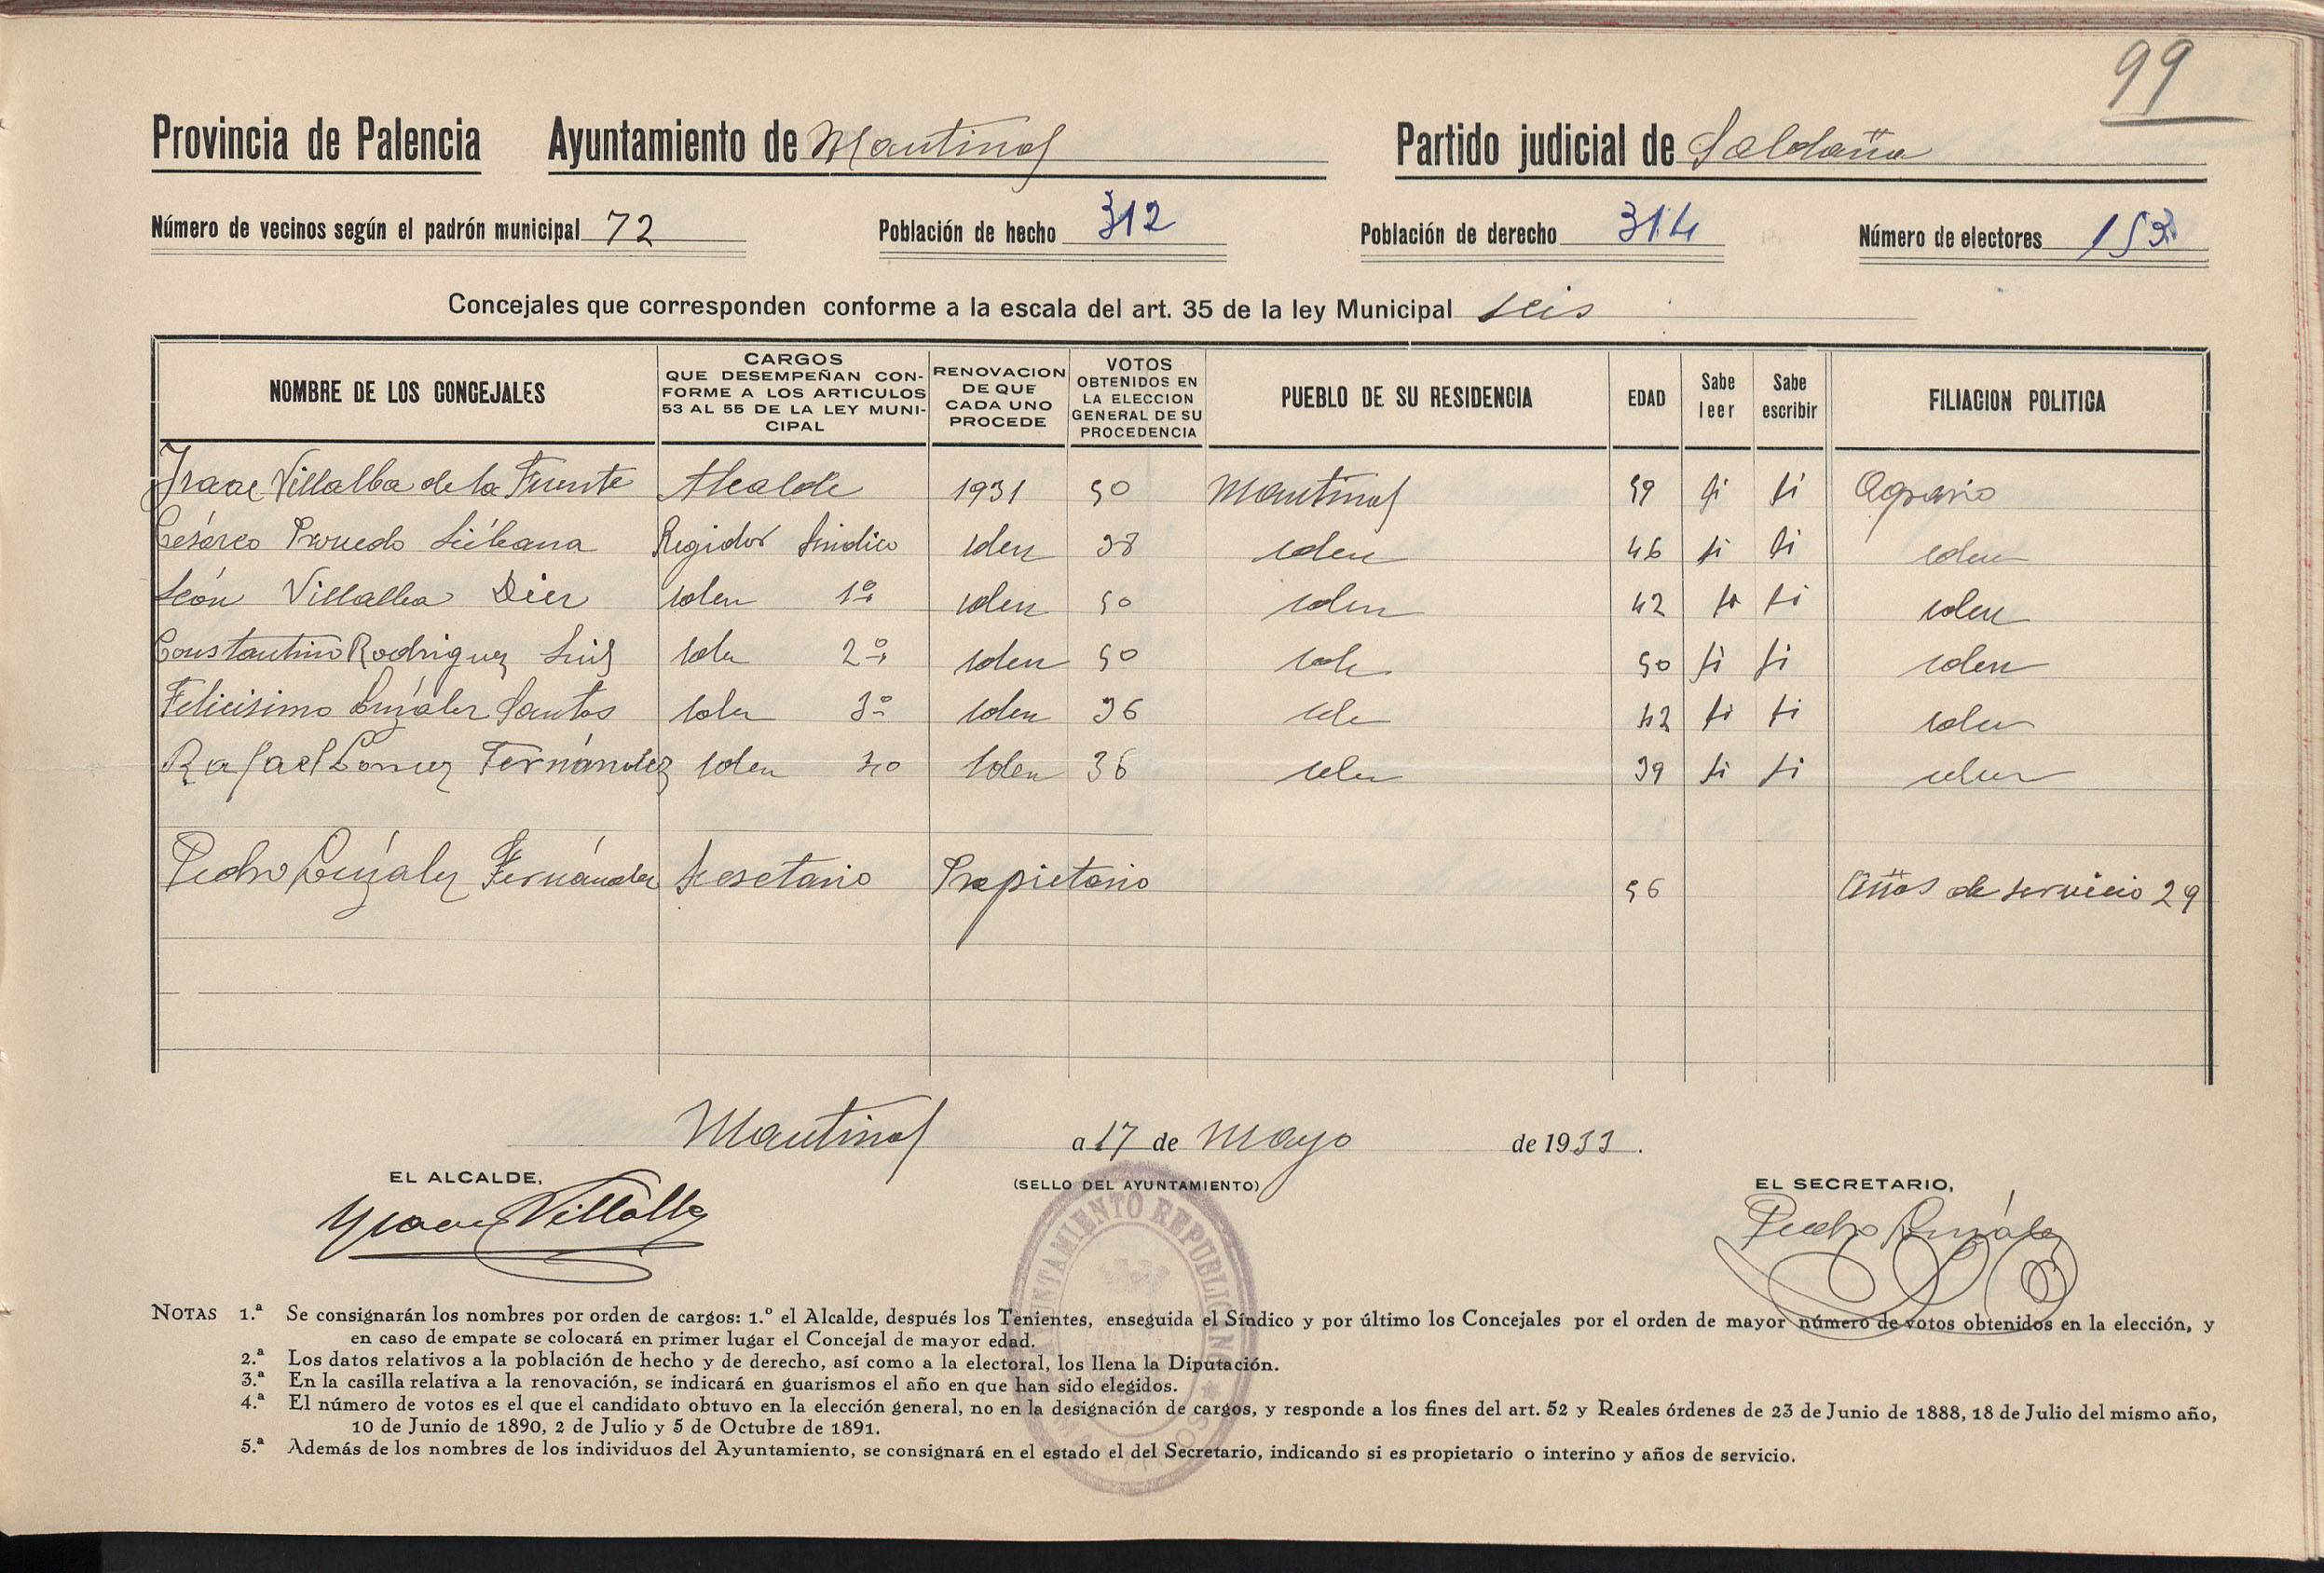 99
Provincia de Palencia Ayuntamiento de Mantinos Partido judicial de Saldaña
Número de vecinos según el padrón municipal 72 Población de hecho 312 Población de derecho 314 Número de electores 153
Concejales que corresponden conforme a la escala del art. 35 de la ley Municipal seis
NOMBRE DE LOS CONCEJALES CARGOS QUE DESEMPEÑAN CONFORME A LOS ARTICULOS 53 AL 55 DE LA LEY MUNICIPAL RENOVACION DE QUE CADA UNO PROCEDE VOTOS OBTENIDOS EN LA ELECCION GENERAL DE SU PROCEDENCIA PUEBLO DE SU RESIDENCIA EDAD Sabe leer Sabe escribir FILIACION POLITICA
Isaac Villalba de la Fuente Alcalde 1931 50 Mantinos 59 si si Agrario
Cesáreo Liébana Regidor Sindico iden 38 iden 46 si si iden
León Villalba Diez iden 1º iden 50 iden 42 si si iden
Constantino Rodriguez Luis iden 2º iden 50 iden 50 si si iden
Felicisimo González Santos iden 3º iden 36 iden 42 si si iden
Rafael Gomez Fernández iden 4º iden 36 iden 39 si si iden
Pedro González Fernández Secretario Propietario 56 Años de servicio 29
Mantinos a 17 de Mayo de 1933.
EL ALCALDE, (SELLO DEL AYUNTAMIENTO) EL SECRETARIO,
Ysaac Villalba Pedro González
AYUNTAMIENTO REPUBLICANO
NOTAS 1.ª Se consignarán los nombres por orden de cargos: 1.º el Alcalde, después los Tenientes, enseguida el Síndico y por último los Concejales por el orden de mayor número de votos obtenidos en la elección, y
en caso de empate se colocará en primer lugar el Concejal de mayor edad.
2.ª Los datos relativos a la población de hecho y de derecho, así como a la electoral, los llena la Diputación.
3.ª En la casilla relativa a la renovación, se indicará en guarismos el año en que han sido elegidos.
4.ª El número de votos es el que el candidato obtuvo en la elección general, no en la designación de cargos, y responde a los fines del art. 52 y Reales órdenes de 23 de Junio de 1888, 18 de Julio del mismo año,
10 de Junio de 1890, 2 de Julio y 5 de Octubre de 1891.
5.ª Además de los nombres de los individuos del Ayuntamiento, se consignará en el estado el del Secretario, indicando si es propietario o interino y años de servicio.